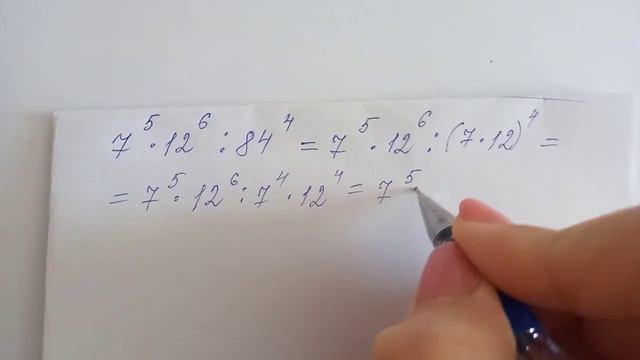 7⁵ · 12⁶ : 84⁴ = 7⁵ · 12⁶ : (7 · 12)⁴ =
= 7⁵ · 12⁶ : 7⁴ · 12⁴ = 7⁵ ·